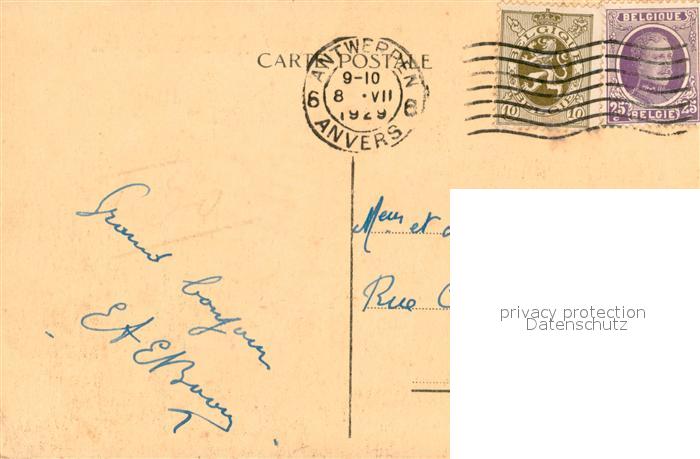 CARTE POSTALE
ANTWERPEN
9-10
6 8 · VII 6
1929
ANVERS
BELGIQUE
BELGIE
10 10
BELGIQUE
25 c 25 c
BELGIE
Meur et
Rue
Grand
bonjour
E A E
privacy protection
Datenschutz